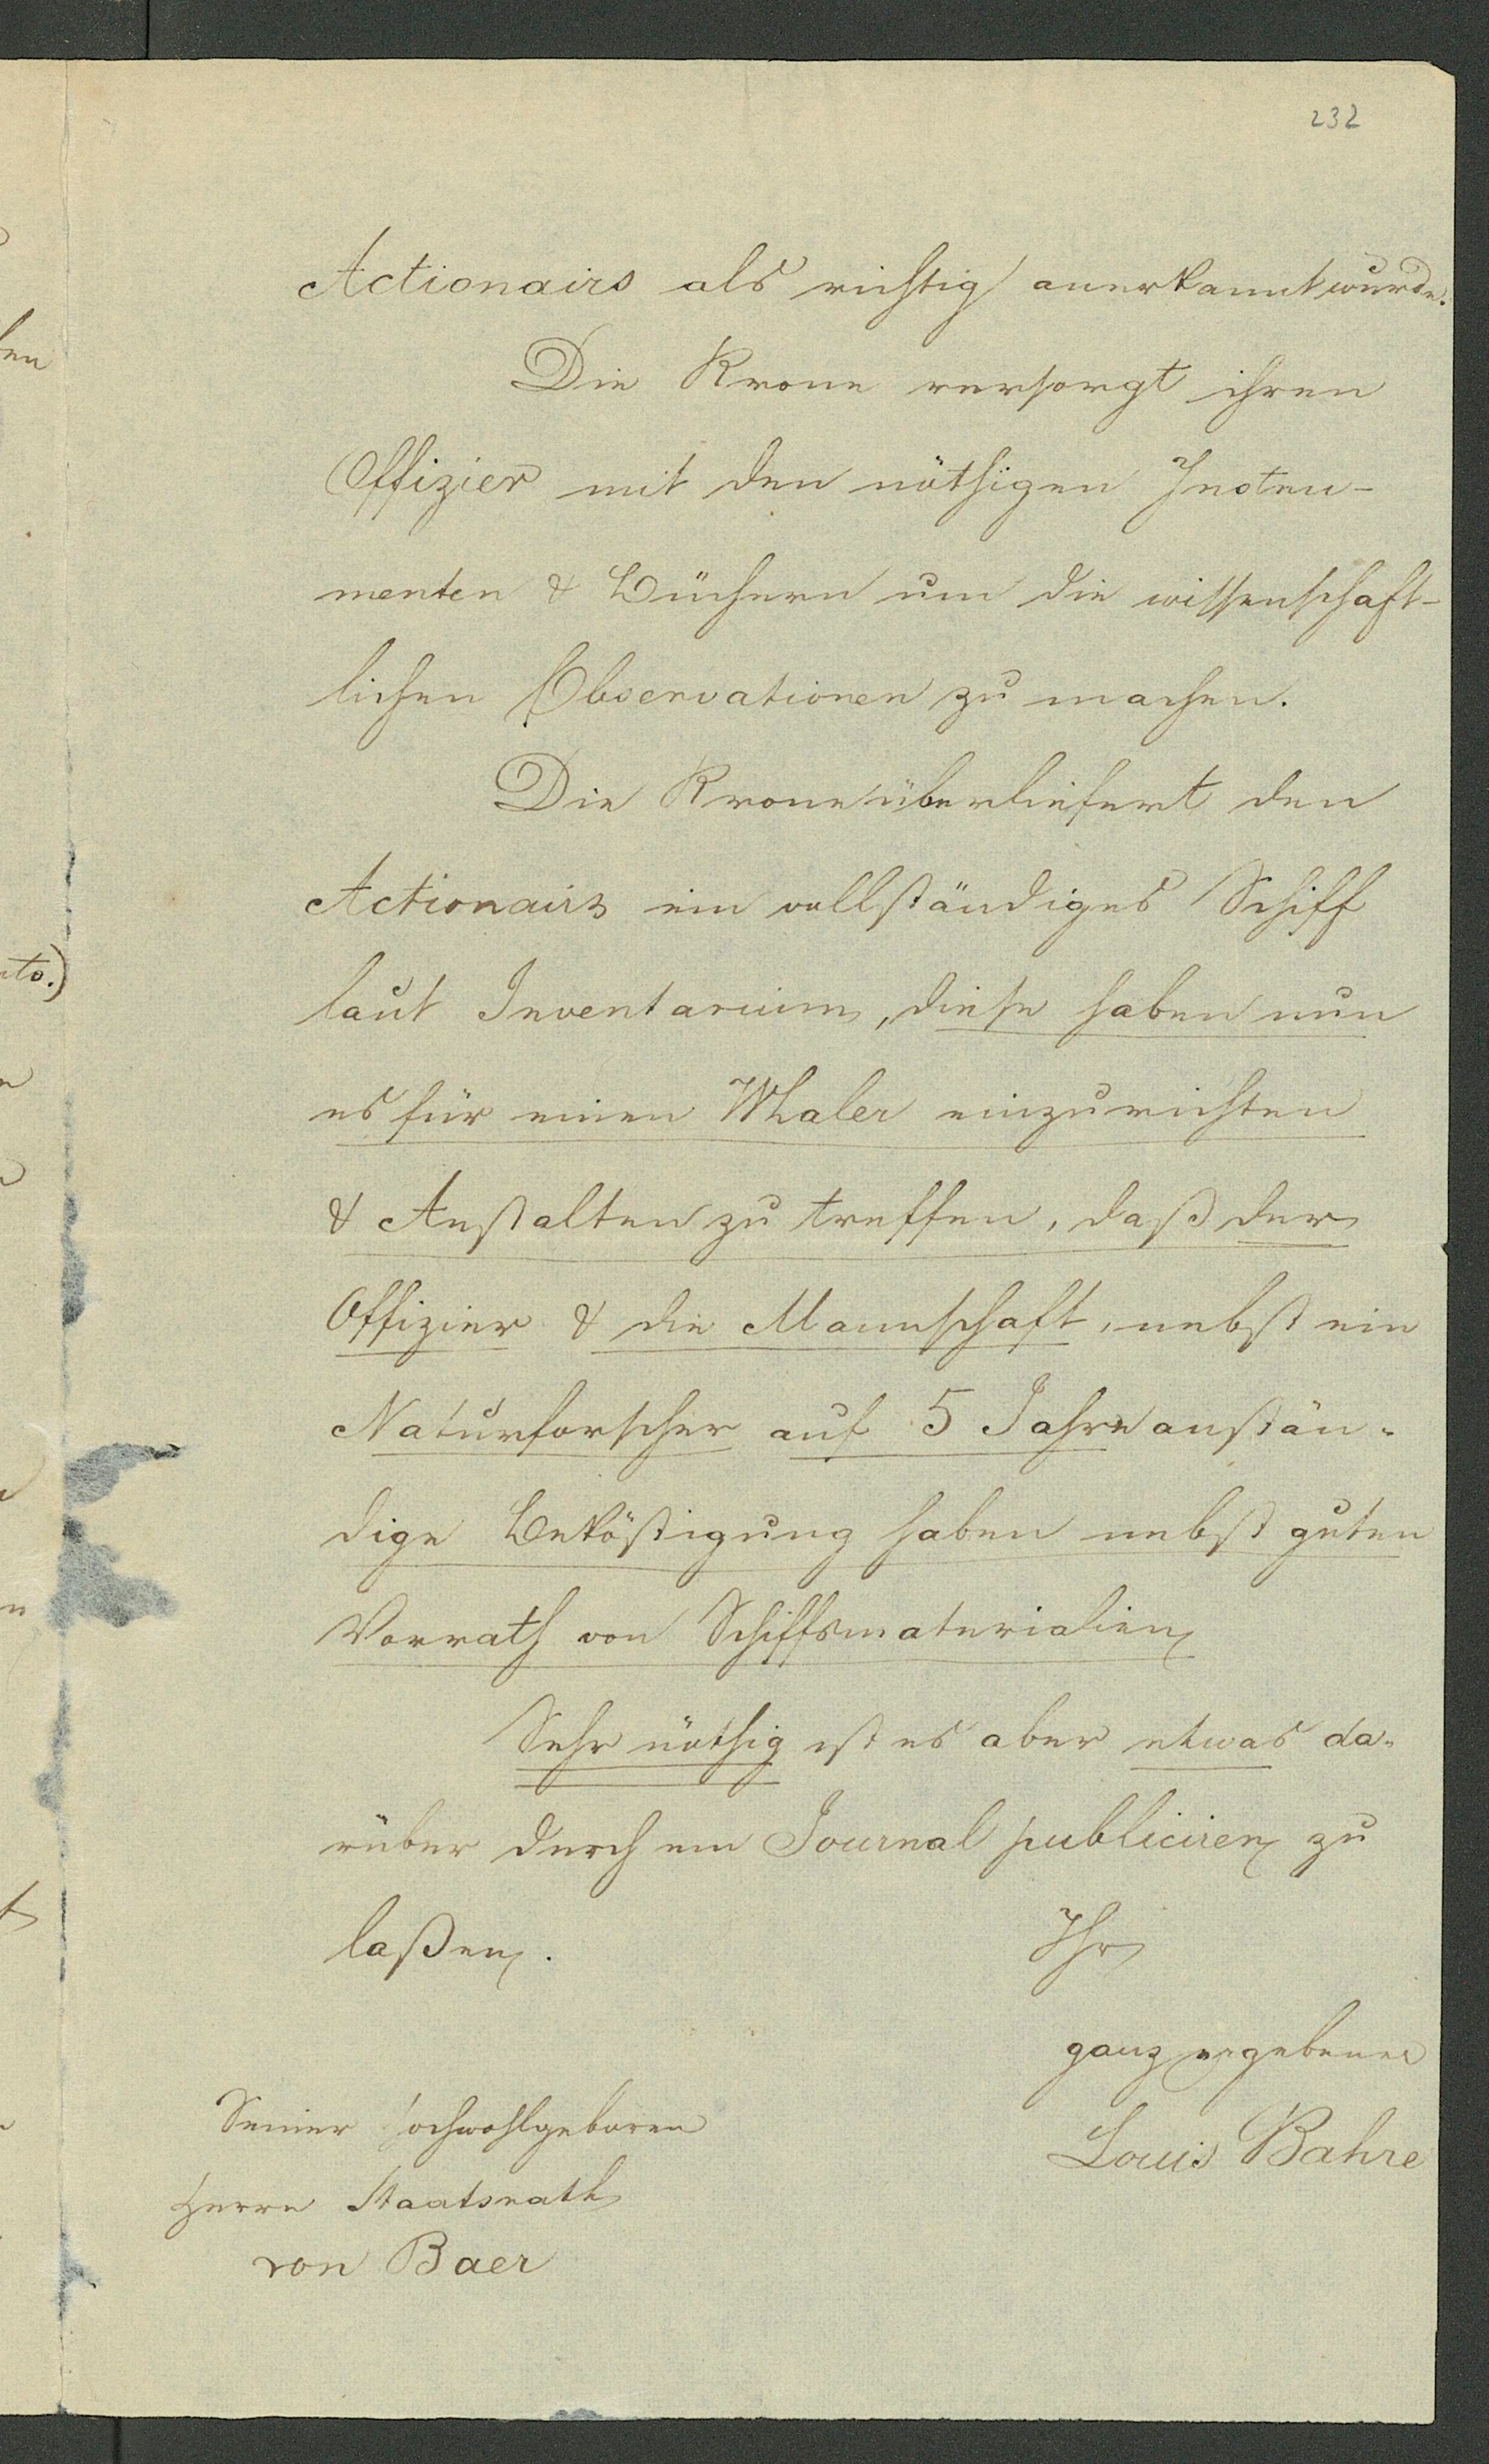 232
Actionairs als richtig anerkannt wurde.
Die Krone versorgt ihren
Offizier mit den nöthigen Instru-
menten & Büchern um die wissenschaft-
lichen Observationen zu machen.
Die Krone überliefert den
Actionairs ein vollständiges Schiff
laut Inventarium, diese haben nun
es für einen Whaler einzurichten
& Anstalten zu treffen, daß der
Offizier & die Mannschaft, nebst ein
Naturforscher auf 5 Jahre anstän-
dige Beköstigung haben nebst guten
Vorrath von Schiffsmaterialien
Sehr nöthig ist es aber etwas da-
rüber durch ein Journal publiciren zu
laßen.
Ihr
ganz ergebener
Louis Bahre
Seiner Hochwohlgeboren
Herrn Staatsrath
von Baer